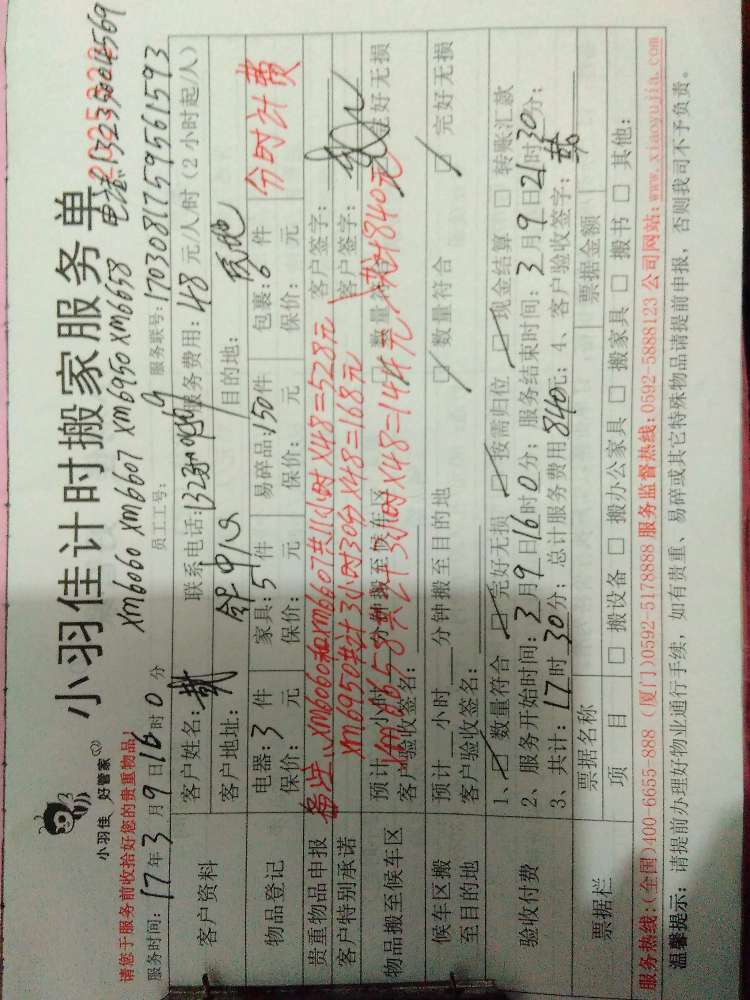 小羽佳 好管家
小羽佳计时搬家服务单
请您于服务前收拾好您的贵重物品!
xm6060 xm6607 xm6950 xm6658
服务时间: 17年3月9日16时0分 员工工号: 服务联号: 17030817595561593
客户资料
客户姓名: 联系电话: 服务费用: 48元/人/时(2小时起/人)
客户地址: 会展中心 目的地:
物品登记
电器: 3件 家具: 5件 易碎品: 150件 包裹: 8件
保价: 元 保价: 元 保价: 元 保价: 元
分时计费
贵重物品申报
客户特别承诺
备注: xm6060和xm6607共11小时X48=528元 客户签字:
xm6950共计3小时30分X48=168元 客户签字:
xm6658共计3小时X48=144元 共计840元
物品搬至候车区
预计 小时 分钟搬至候车区 □数量符合 □完好无损
客户验收签名:
候车区搬
至目的地
预计 小时 分钟搬至目的地 □数量符合 □完好无损
客户验收签名:
验收付费
1、□数量符合 □完好无损 □按需归位 □现金结算 □转账汇款
2、服务开始时间: 3月9日16时0分; 服务结束时间: 3月9日21时30分;
3、共计: 17时30分; 总计服务费用840元; 4、客户验收签字:
票据栏
票据名称 票据金额
项 目 □搬设备 □搬办公家具 □搬家具 □搬书 □其他:
服务热线:(全国)400-6655-888 (厦门)0592-5178888 服务监督热线:0592-5888123 公司网站:www.xiaoyujia.com
温馨提示: 请提前办理好物业通行手续,如有贵重、易碎或其它特殊物品请提前申报,否则我司不予负责。